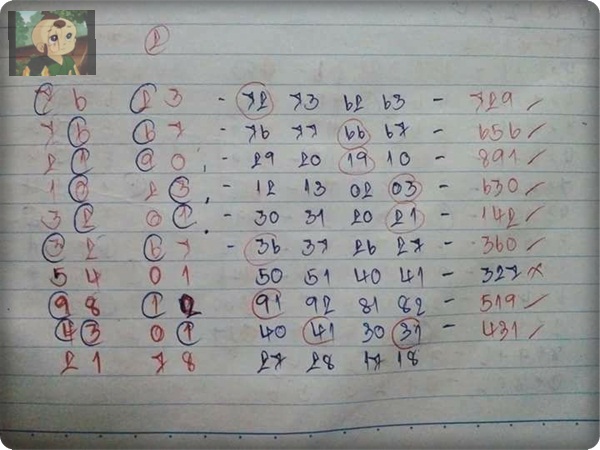 2
7 6 2 3 - 72 73 62 63 - 729 ✓
7 6 6 7 - 76 77 66 67 - 656 ✓
2 1 9 0 - 29 20 19 10 - 891 ✓
1 0 2 3 - 12 13 02 03 - 630 ✓
3 2 0 1 - 30 31 20 21 - 142 ✓
3 2 6 7 - 36 37 26 27 - 360 ✓
5 4 0 1 50 51 40 41 - 327 ×
9 8 1 2 91 92 81 82 - 519 ✓
4 3 0 1 40 41 30 31 - 431 ✓
2 1 7 8 27 28 17 18